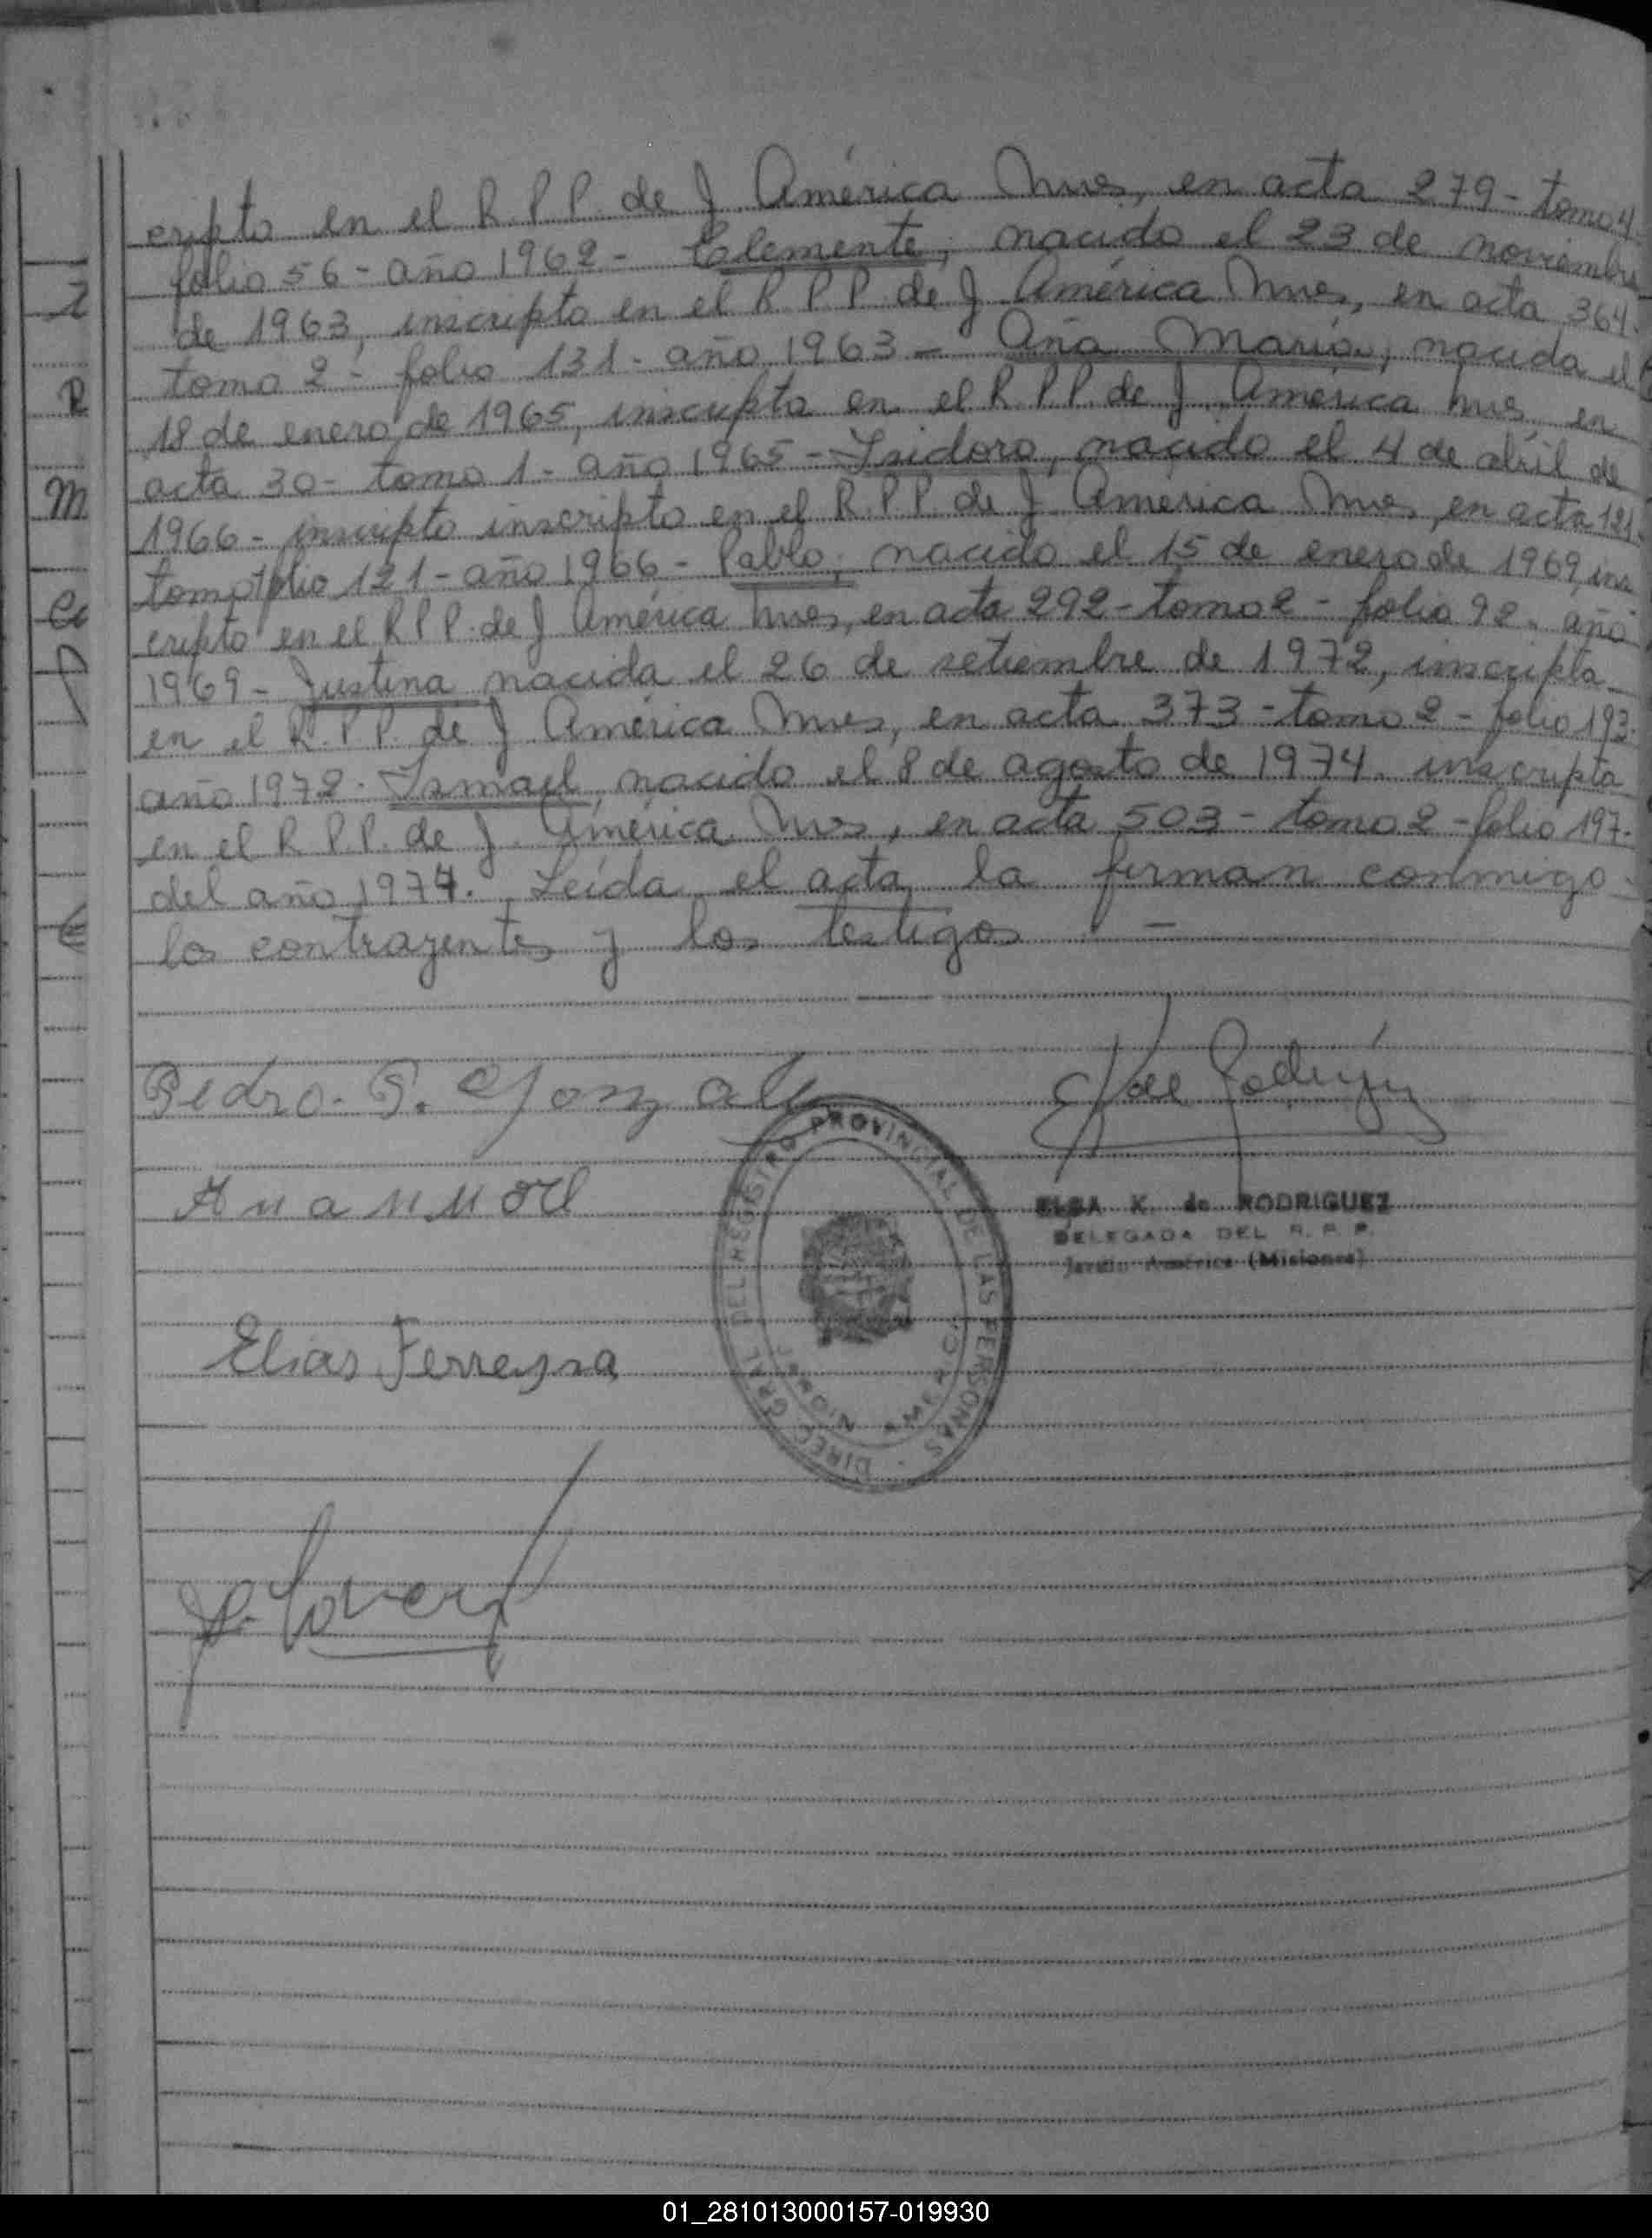 cripto en el R.P.P. de J. América Mnes, en acta 279- tomo 4
folio 56- año 1962- Celemente, nacido el 23 de noviembre
de 1963, inscripto en el R.P.P. de J. América Mnes, en acta 364-
tomo 2- folio 131- año 1963- Ana María, nacida el
18 de enero de 1965, inscripta en el R.P.P. de J. América Mnes, en
acta 30- tomo 1- año 1965- Isidoro, nacido el 4 de abril de
1966- inscripto inscripto en el R.P.P. de J. América Mnes, en acta 121-
tomo 1 folio 121- año 1966- Pablo, nacido el 15 de enero de 1969, ins
cripto en el R.P.P. de J América Mnes, en acta 292- tomo 2- folio 92- año
1969- Justina nacida el 26 de setiembre de 1972, inscripta
en el R.P.P. de J América Mnes, en acta 373- tomo 2- folio 193-
año 1972- Ismael, nacido el 8 de agosto de 1974. inscripta
en el R.P.P. de J. América Mnes, en acta 503- tomo 2- folio 197-
del año 1974. Leída el acta, la firman conmigo-
los contrayentes y los testigos -
Pedro. G. Gonzale
de Rodríguez
ELSA K. de RODRIGUEZ
DELEGADA DEL R. P. P.
Jardín América (Misiones)
Elias Ferreyra
DIREC. GRAL. DEL REGISTRO PROVINCIAL DE LAS PERSONAS
01_281013000157-019930